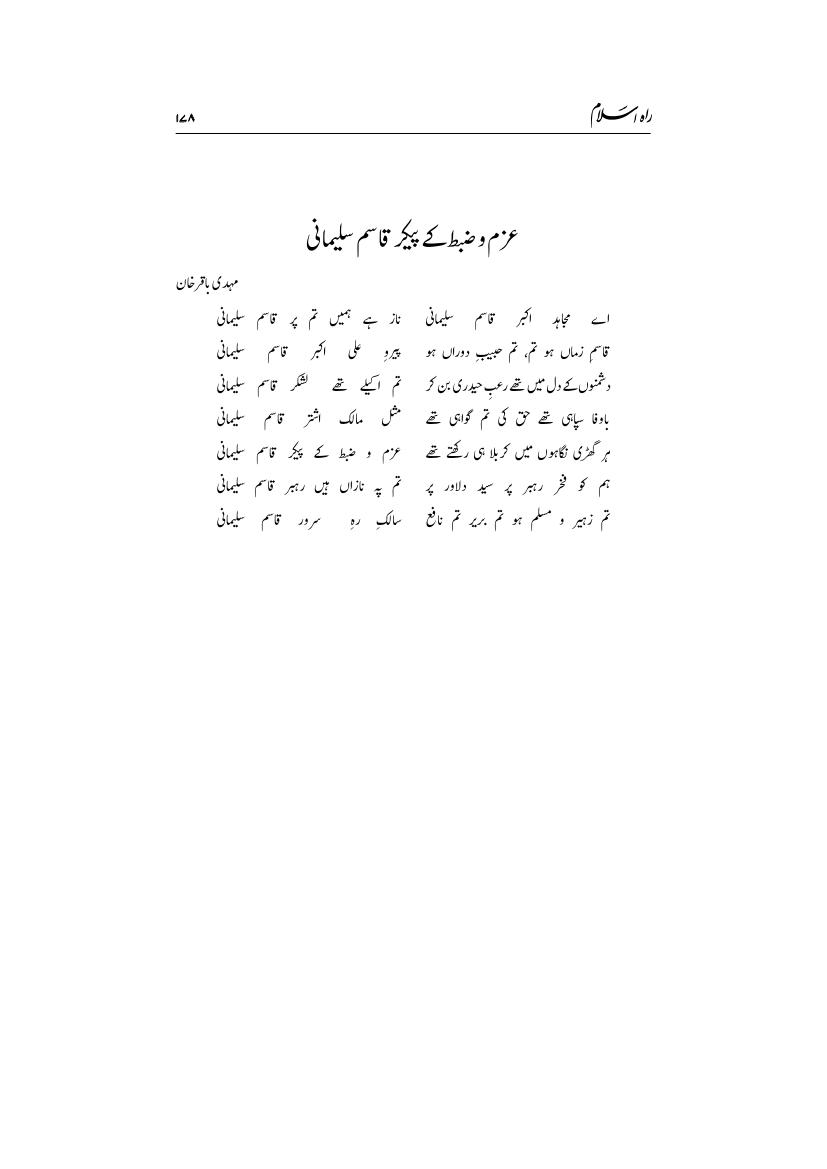 راہ اسلام ۱۷۸
عزم و ضبط کے پیکر قاسم سلیمانی
مہدی باقر خان
اے مجاہد اکبر قاسم سلیمانی ناز ہے ہمیں تم پر قاسم سلیمانی
قاسمِ زماں ہو تم، تم حبیبِ دوراں ہو پیروِ علی اکبر قاسم سلیمانی
دشمنوں کے دل میں تھے رعبِ حیدری بن کر تم اکیلے تھے لشکر قاسم سلیمانی
باوفا سپاہی تھے حق کی تم گواہی تھے مثل مالک اشتر قاسم سلیمانی
ہر گھڑی نگاہوں میں کربلا ہی رکھتے تھے عزم و ضبط کے پیکر قاسم سلیمانی
ہم کو فخر رہبر پر سید دلاور پر تم پہ نازاں ہیں رہبر قاسم سلیمانی
تم زہیر و مسلم ہو تم بریر تم نافع سالکِ رہِ سرور قاسم سلیمانی